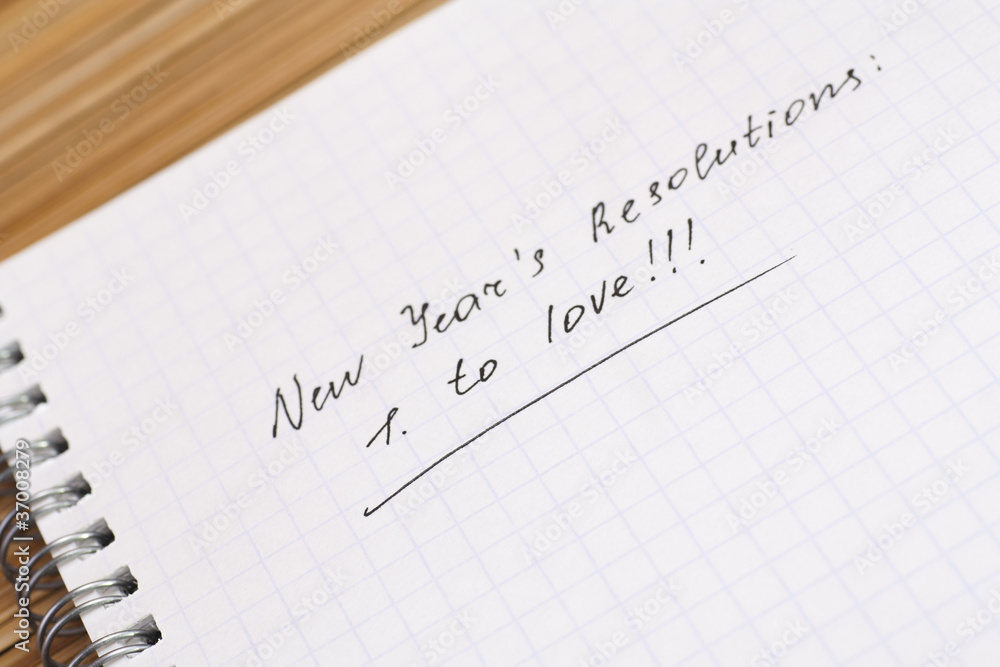 New Year's Resolutions:
1. to love!!!
Adobe Stock | #37008279